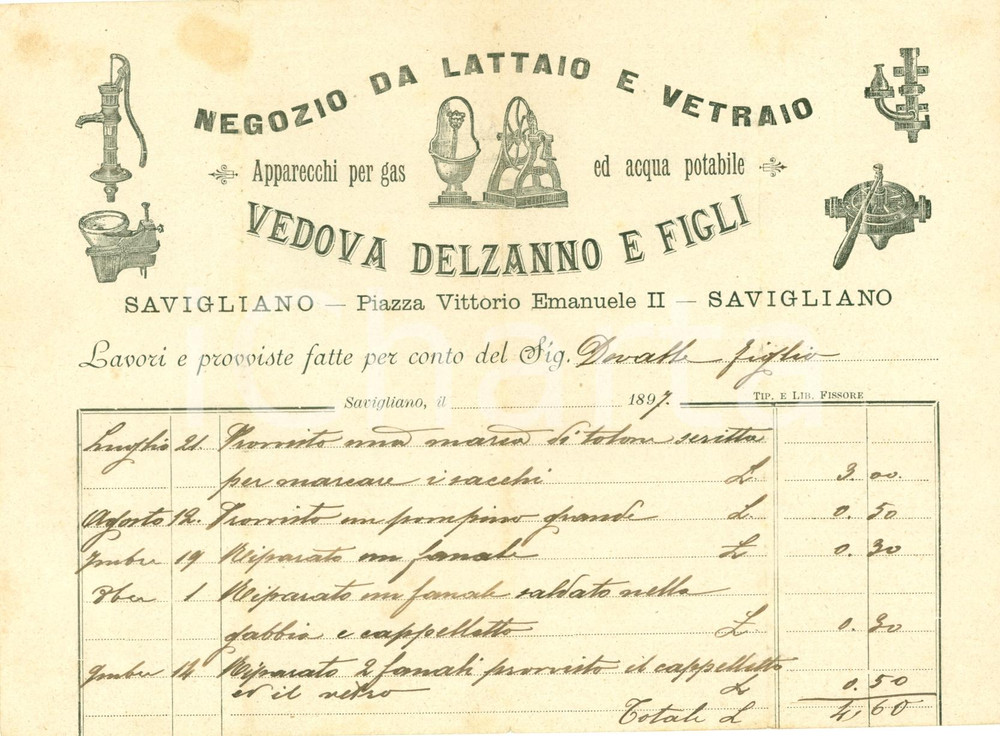 NEGOZIO DA LATTAIO E VETRAIO
Apparecchi per gas ed acqua potabile
VEDOVA DELZANNO E FIGLI
SAVIGLIANO — Piazza Vittorio Emanuele II — SAVIGLIANO
Lavori e provviste fatte per conto del Sig. Devalle figlio
Savigliano, il 1897. TIP. E LIB. FISSORE
Luglio 21. Provvisto una marca di tolone scritta
per marcare i sacchi L. 3. 00.
Agosto 12. Provvisto un pompino grande L. 0. 50
7mbre 19 Riparato un fanale L. 0. 30
8ber 1 Riparato un fanale saldato nella
gabbia e cappelletto L. 0. 30
9mber 14 Riparato 2 fanali provvisto il cappelletto
ed il vetro L 0. 50
Totale L 4, 60